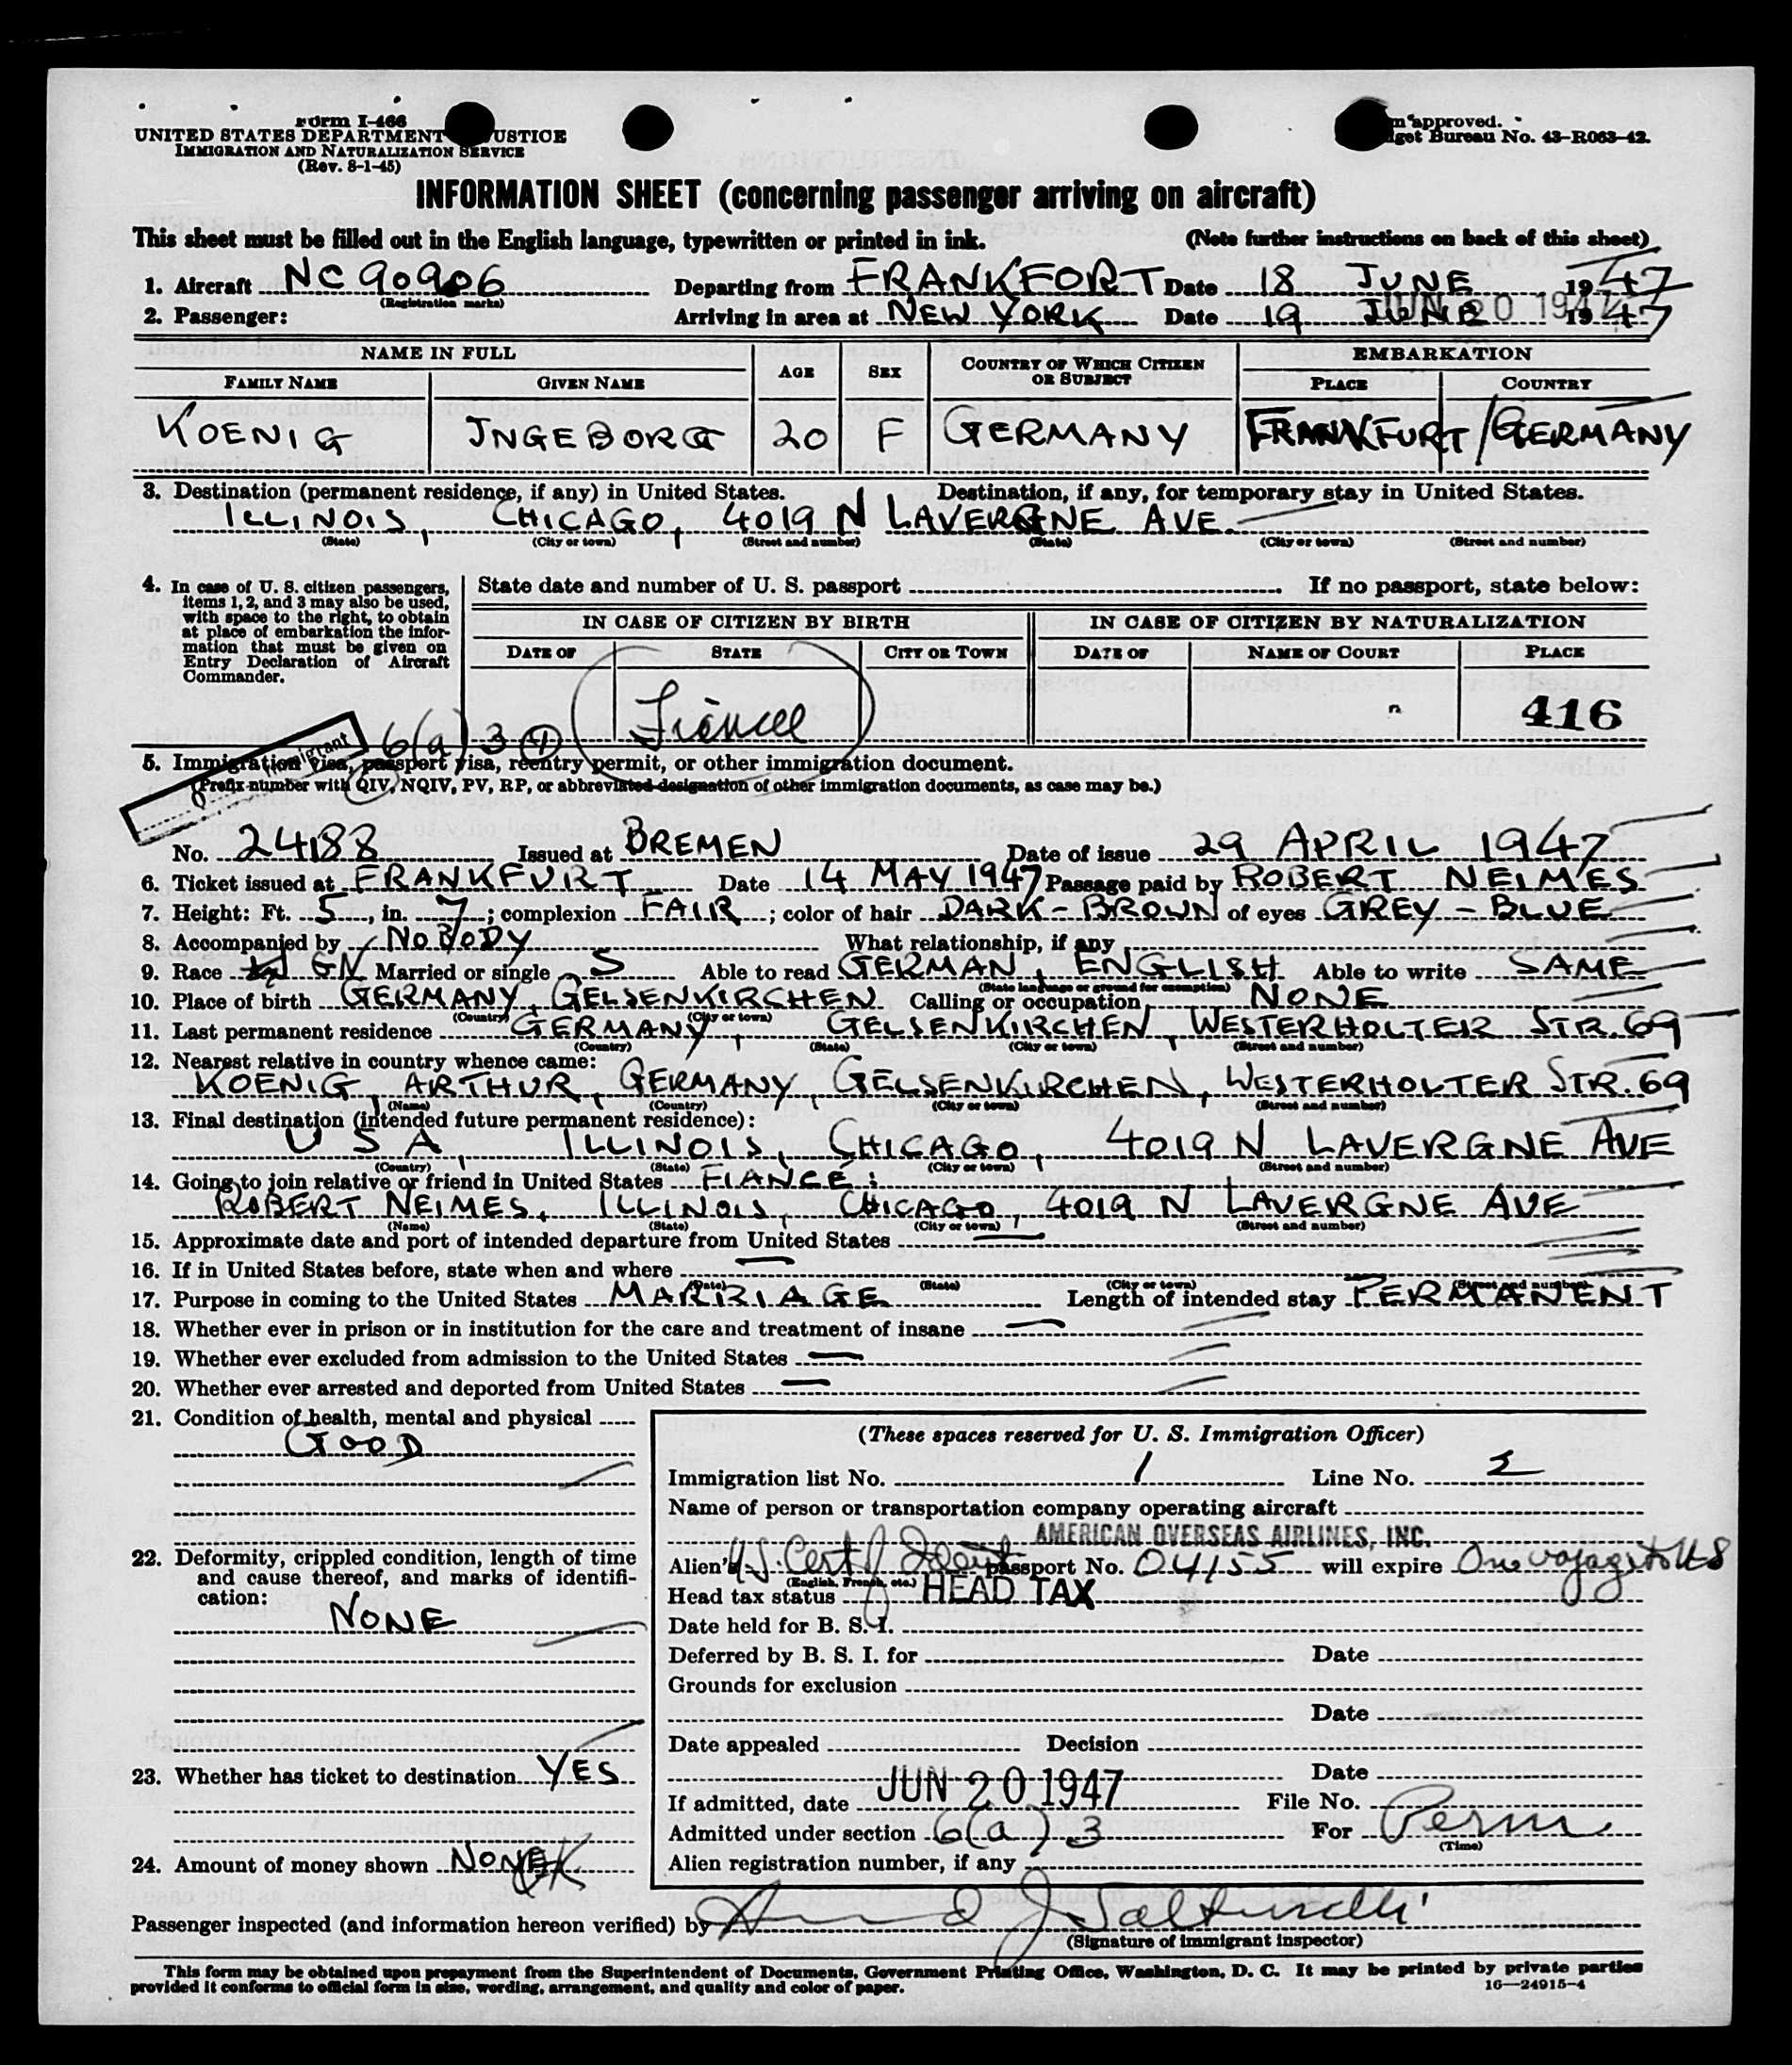 Form I-466
UNITED STATES DEPARTMENT USTICE
IMMIGRATION AND NATURALIZATION SERVICE
(Rev. 8-1-45)
approved.
get Bureau No. 43-R063-42.
INFORMATION SHEET (concerning passenger arriving on aircraft)
This sheet must be filled out in the English language, typewritten or printed in ink. (Note further instructions on back of this sheet)
1. Aircraft NC 90906 Departing from FRANKFORT Date 18 JUNE 1947
(Registration marks)
JUN 20 1947
2. Passenger: Arriving in area at NEW YORK Date 19 JUNE 1947
NAME IN FULL AGE SEX COUNTRY OF WHICH CITIZEN OR SUBJECT EMBARKATION
FAMILY NAME GIVEN NAME PLACE COUNTRY
KOENIG INGEBORG 20 F GERMANY FRANKFURT / GERMANY
3. Destination (permanent residence, if any) in United States. Destination, if any, for temporary stay in United States.
ILLINOIS, CHICAGO, 4019 N LAVERGNE AVE.
(State) (City or town) (Street and number) (State) (City or town) (Street and number)
4. In case of U. S. citizen passengers, items 1, 2, and 3 may also be used, with space to the right, to obtain at place of embarkation the information that must be given on Entry Declaration of Aircraft Commander.
State date and number of U. S. passport If no passport, state below:
IN CASE OF CITIZEN BY BIRTH IN CASE OF CITIZEN BY NATURALIZATION
DATE OF STATE CITY OR TOWN DATE OF NAME OF COURT PLACE
416
6(a) 3
5. Immigration visa, passport visa, reentry permit, or other immigration document.
(Prefix number with QIV, NQIV, PV, RP, or abbreviated designation of other immigration documents, as case may be.)
No. 24188 Issued at BREMEN Date of issue 29 APRIL 1947
6. Ticket issued at FRANKFURT Date 14 MAY 1947 Passage paid by ROBERT NEIMES
7. Height: Ft. 5, in. 7; complexion FAIR; color of hair DARK-BROWN of eyes GREY-BLUE
8. Accompanied by NOBODY What relationship, if any
9. Race GN Married or single S Able to read GERMAN, ENGLISH Able to write SAME
(State language or ground for exemption)
10. Place of birth GERMANY, GELSENKIRCHEN Calling or occupation NONE
(Country) (City or town)
11. Last permanent residence GERMANY, GELSENKIRCHEN, WESTERHOLTER STR. 69
(Country) (State) (City or town) (Street and number)
12. Nearest relative in country whence came:
KOENIG, ARTHUR, GERMANY, GELSENKIRCHEN, WESTERHOLTER STR. 69
(Name) (Country) (City or town) (Street and number)
13. Final destination (intended future permanent residence):
USA, ILLINOIS, CHICAGO, 4019 N LAVERGNE AVE
(Country) (State) (City or town) (Street and number)
14. Going to join relative or friend in United States FIANCÉ:
ROBERT NEIMES, ILLINOIS, CHICAGO, 4019 N LAVERGNE AVE
(Name) (State) (City or town) (Street and number)
15. Approximate date and port of intended departure from United States —
16. If in United States before, state when and where —
(Date) (State) (City or town) (Street and number)
17. Purpose in coming to the United States MARRIAGE Length of intended stay PERMANENT
18. Whether ever in prison or in institution for the care and treatment of insane —
19. Whether ever excluded from admission to the United States —
20. Whether ever arrested and deported from United States —
21. Condition of health, mental and physical
GOOD
22. Deformity, crippled condition, length of time and cause thereof, and marks of identification:
NONE
23. Whether has ticket to destination YES
24. Amount of money shown NONE
(These spaces reserved for U. S. Immigration Officer)
Immigration list No. 1 Line No. 2
Name of person or transportation company operating aircraft
AMERICAN OVERSEAS AIRLINES, INC.
Alien's US Cert of Ident passport No. 04155 will expire One voyage to US
(English, French, etc.)
Head tax status HEAD TAX
Date held for B. S. I.
Deferred by B. S. I. for Date
Grounds for exclusion
Date
Date appealed Decision
Date
If admitted, date JUN 20 1947 File No.
Admitted under section 6(a) 3 For Perm
(Time)
Alien registration number, if any
Passenger inspected (and information hereon verified) by
(Signature of immigrant inspector)
This form may be obtained upon prepayment from the Superintendent of Documents, Government Printing Office, Washington, D. C. It may be printed by private parties
provided it conforms to official form in size, wording, arrangement, and quality and color of paper. 16—24915-4